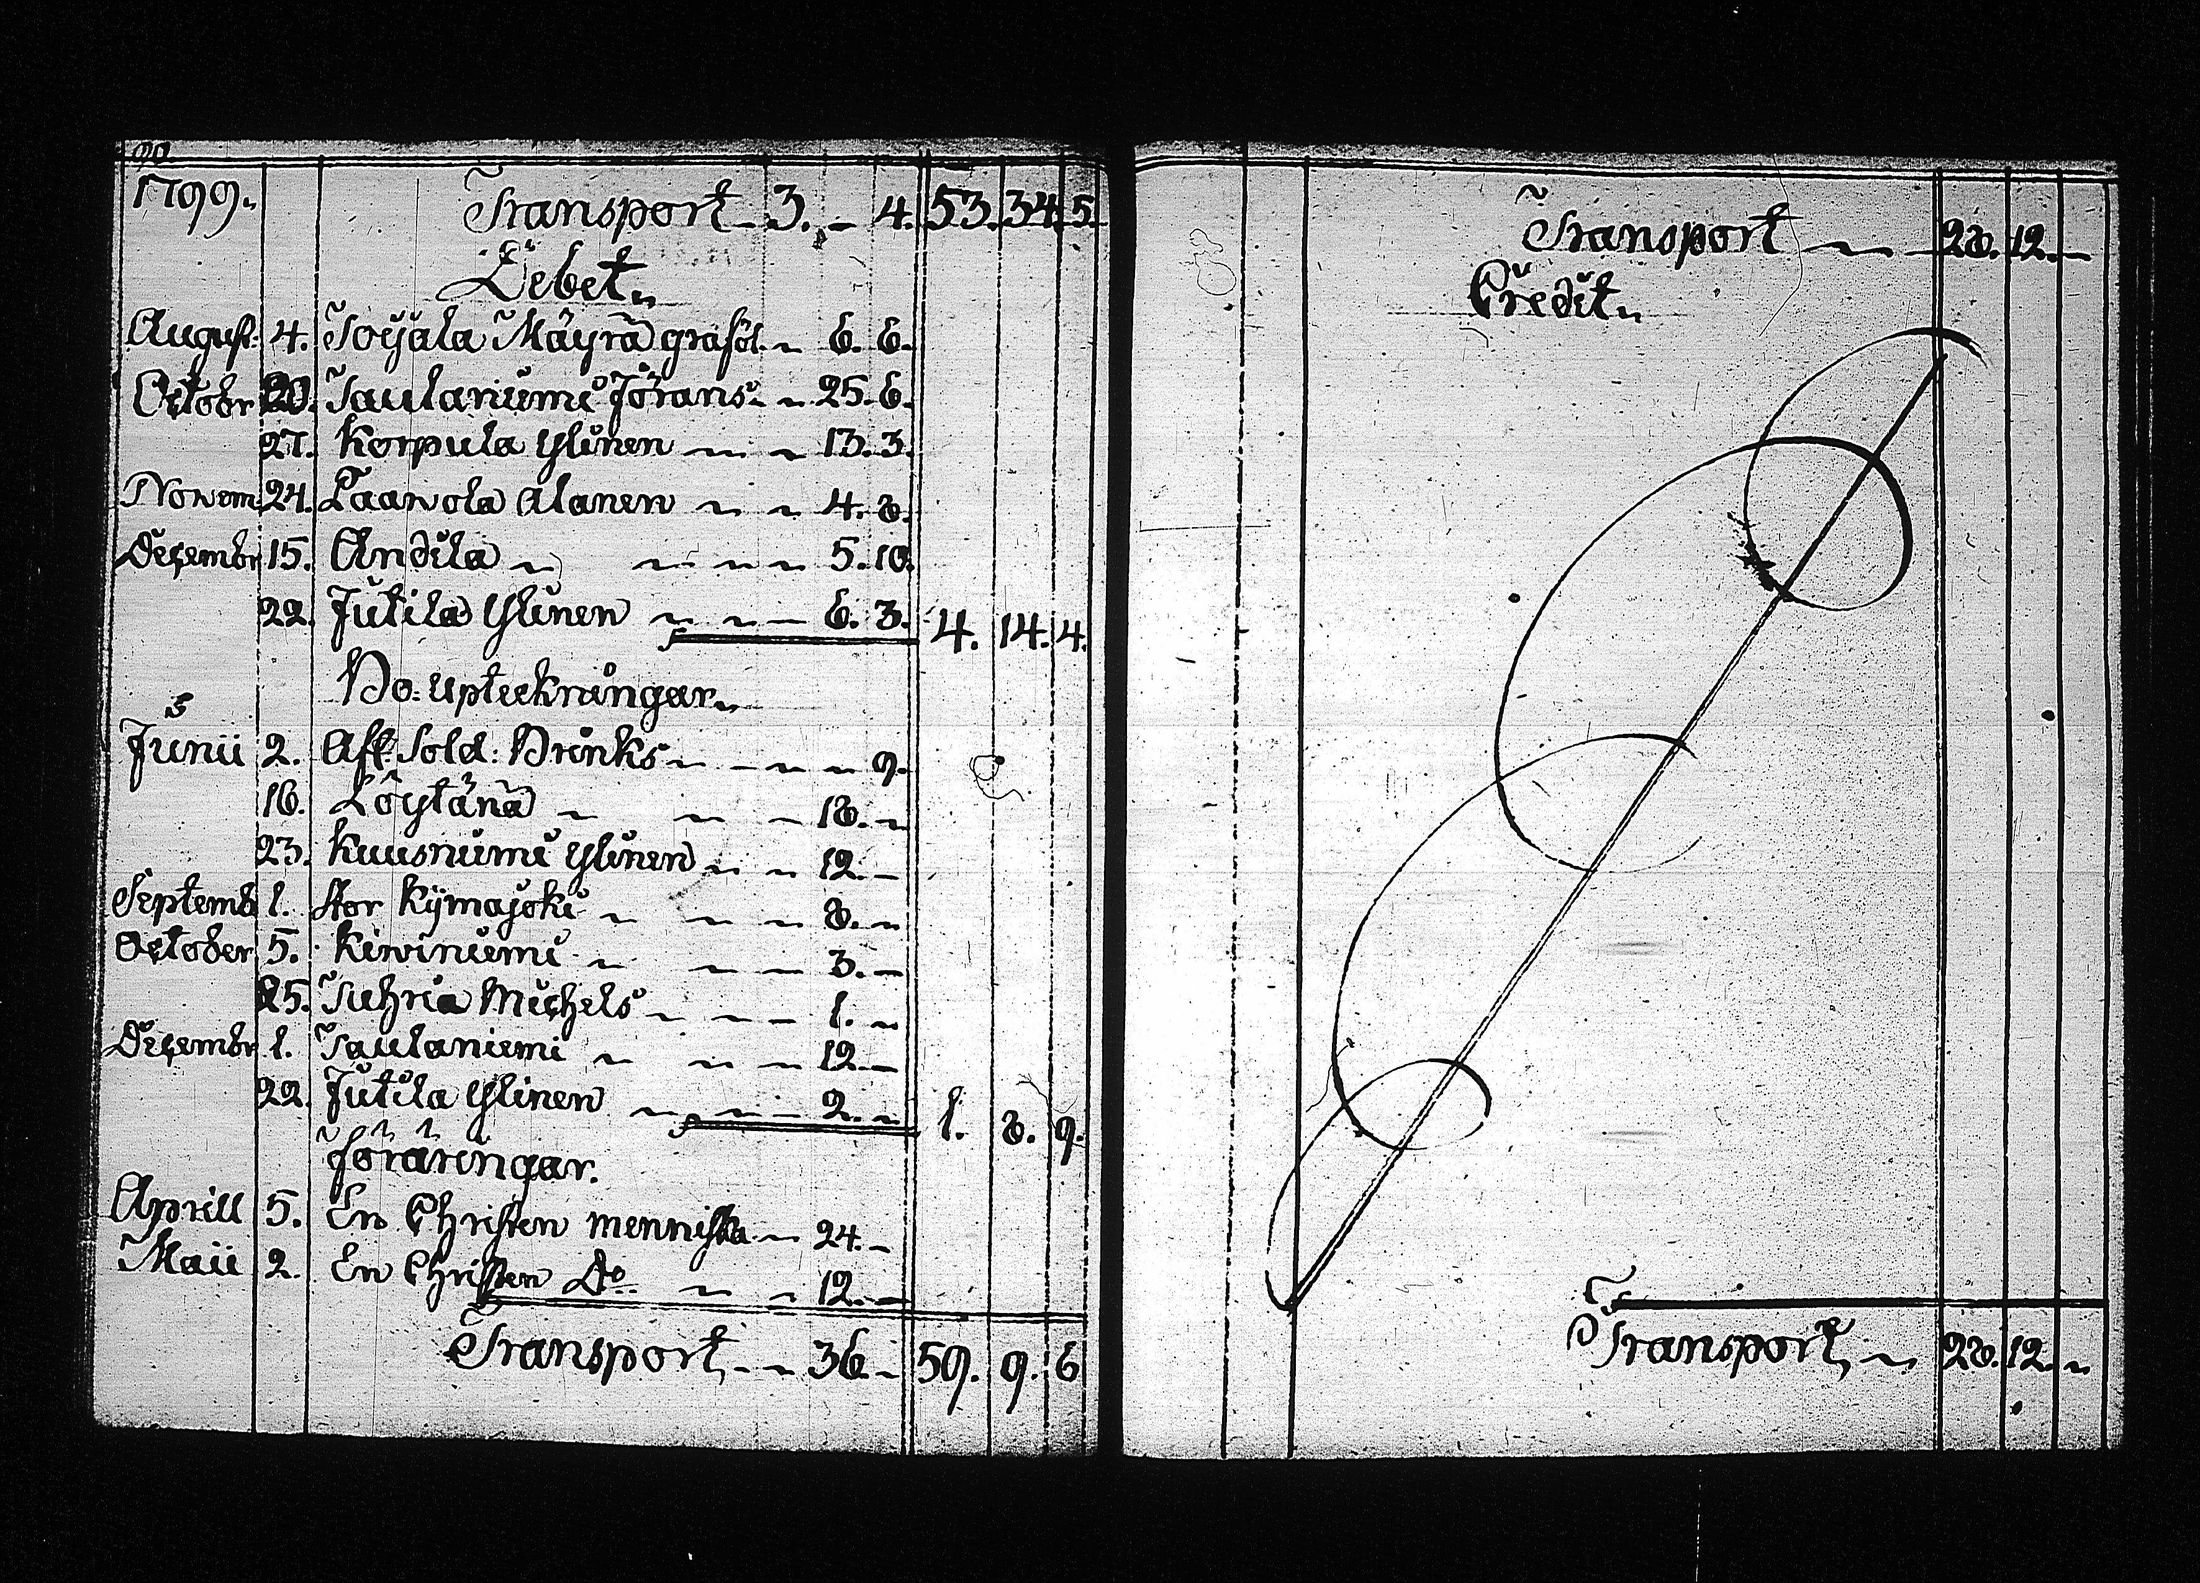 90
1799. Transport - 3. - 4. 53. 34. 5.
Debet
August: 4. Toÿala Mäyrä graföl. 6. 6.
Octobr 20. Taulaniemi Jörans 25. 6.
27. Korpula Ylinen 13. 3.
Novem: 24. Paavola Alanen 4. 8.
Decembr 15. Andila 5. 10.
22. Jutila Ylinen 6. 3. 4. 14. 4.
Do: Upteckningar
Junii 2. Aff. Sold: Brinks 9.
16. Löytänä 18. -
23. Kuusniemi Ylinen 12. -
Septemb 1. Stor Kijmajoki 8. -
October 5. Kiviniemi 3. -
25. Tuhria Michels 1. -
Decembr 1. Taulaniemi 12. -
22. Jutila Ylinen 2. - 1. 8. 9.
Föräringar.
Aprill 5. En Christen menniska 24. -
Maii 2. En Christen Do 12. -
Transport - 36. - 59. 9. 6
Transport 28. 12. -
Credit
Transport 28. 12. -